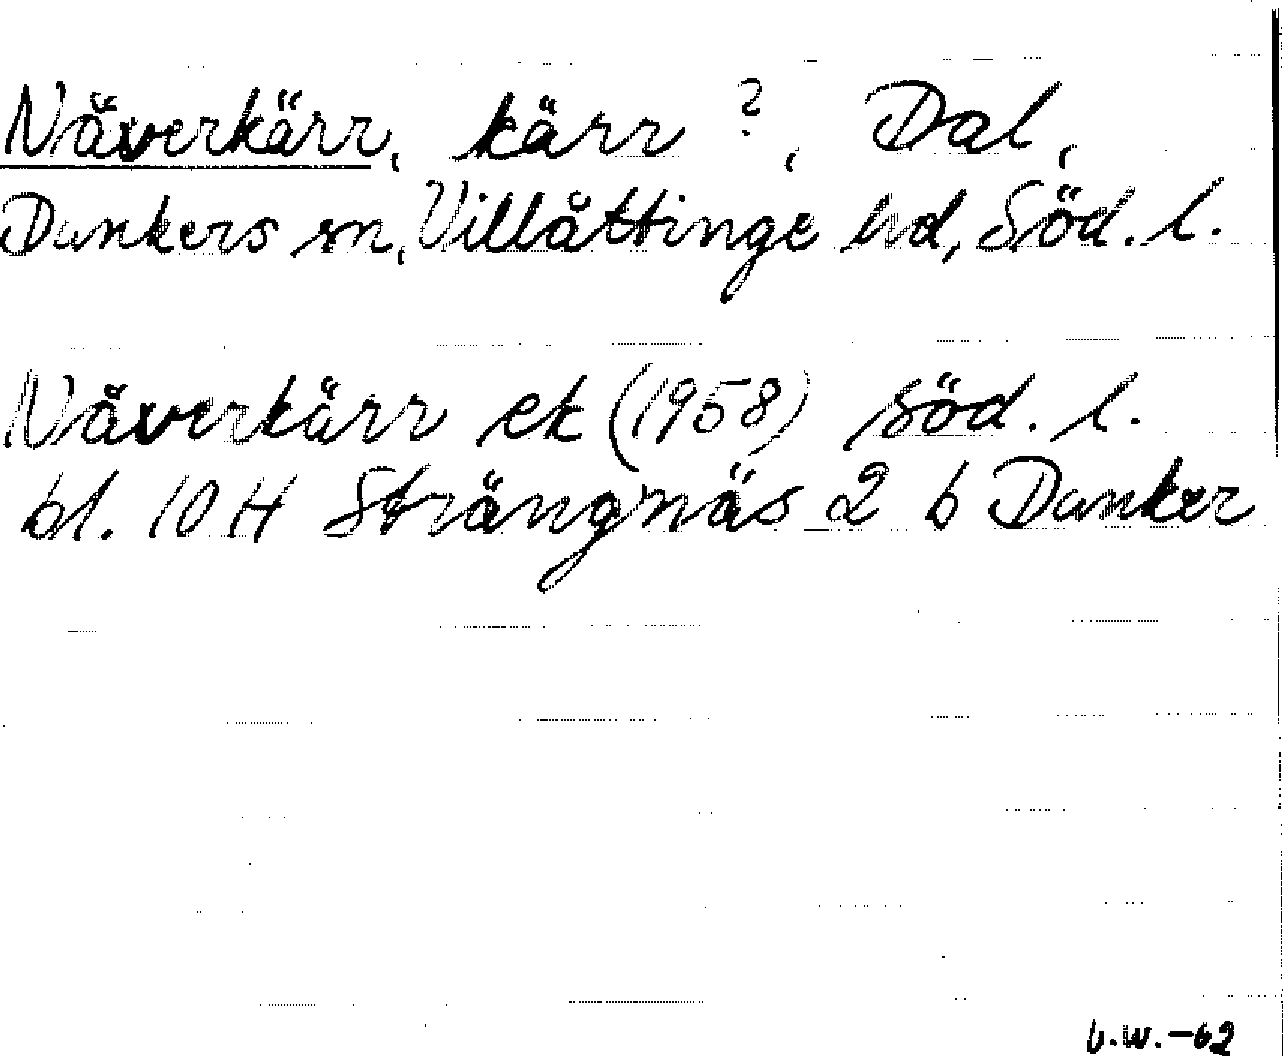 Näverkärr, kärr?, Dal,
Dunkers sn, Villåttinge hd, Söd. l.
Näverkärr ek (1958) Söd. l.
bl. 10 H Strängnäs 2 b Dunker
b.w.-62